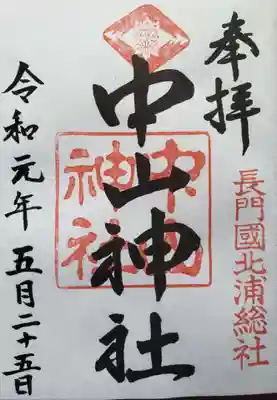 奉拝
長門國北浦総社
中山神社
中山
神社
令和元年 五月二十五日